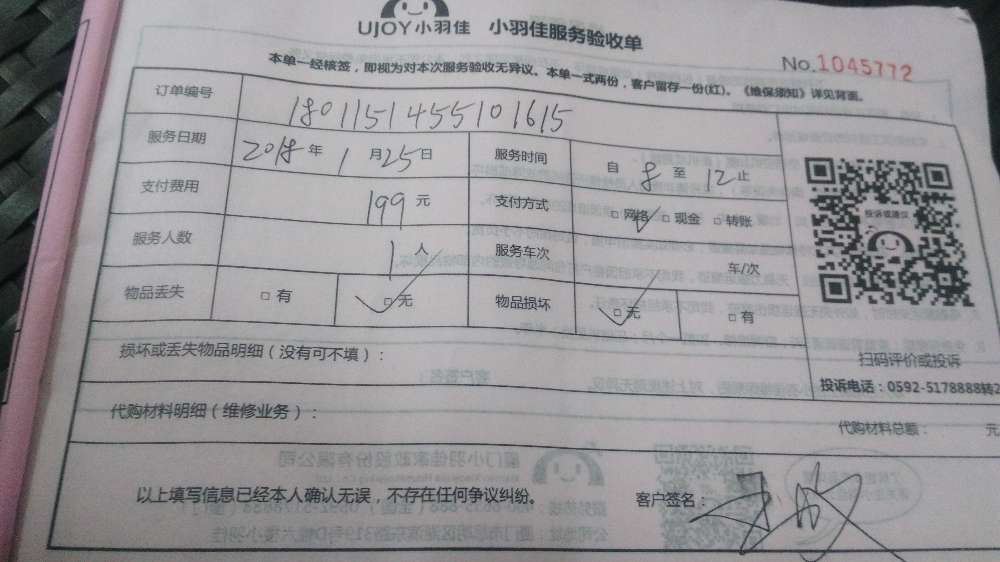 UJOY小羽佳 小羽佳服务验收单
No.1045772
本单一经核签，即视为对本次服务验收无异议。本单一式两份，客户留存一份(红)。《维保须知》详见背面。
订单编号 180115145510 1615
服务日期 2018年1月25日 服务时间 自8至12止
支付费用 199元 支付方式 □网络 □现金 □转账
服务人数 1人 服务车次 车/次
物品丢失 □有 □无 物品损坏 □无 □有
投诉或建议
扫码评价或投诉
投诉电话：0592-5178888转2
损坏或丢失物品明细（没有可不填）：
代购材料明细（维修业务）：
代购材料总额： 元
以上填写信息已经本人确认无误，不存在任何争议纠纷。 客户签名：